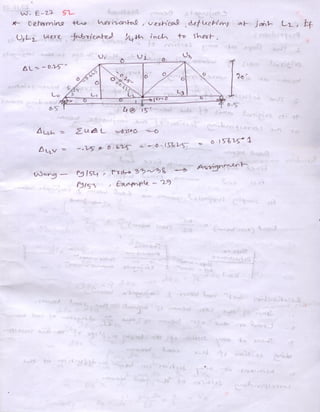 W. E-27 52
* Determine the horizontal, vertical deflection at joint L2, if
U1L2 were fabricated 1/4th inch to short.
U1 U2 U3
ΔL = -0.25"
20'
L0 L1 L2 L3
0.5 4@15' 0.5
ΔL2H = ΣuΔL = 0
ΔL2V = -.25 * 0.625 = -0.15625 = 0.15625" ↑
Wang - Pg 154, 33~38 → Assignment
Pg 153, Example - 29